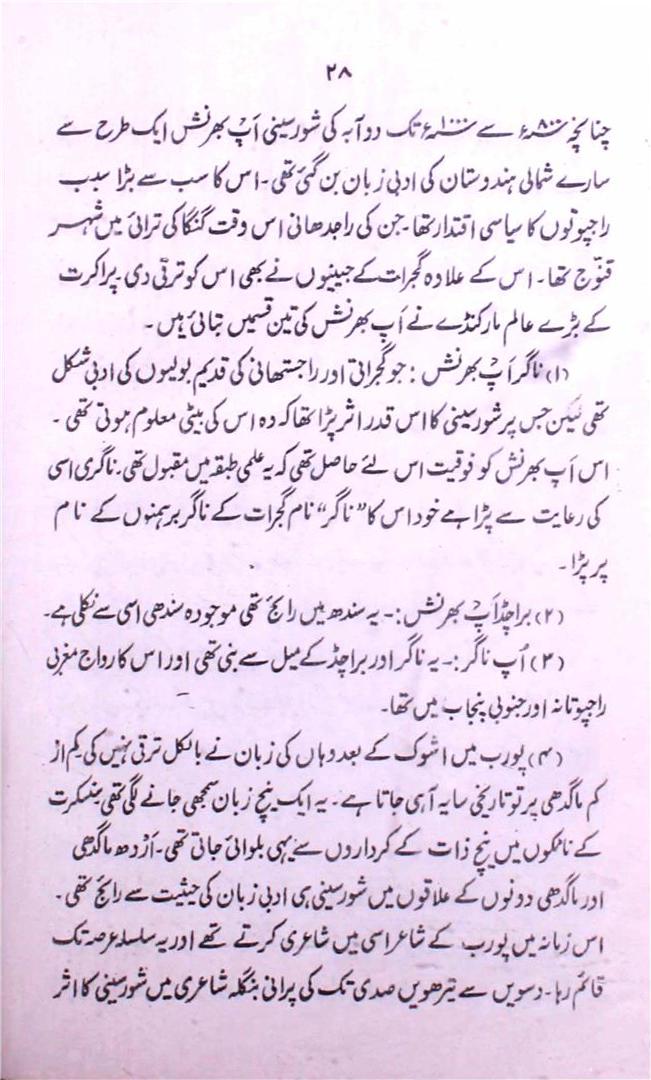 ۲۸
چنانچہ ۸۰۰ء سے ۱۰۰۰ء تک دوآبہ کی شورسینی اَپ بھرنش ایک طرح سے
سارے شمالی ہندوستان کی ادبی زبان بن گئی تھی۔ اس کا سب سے بڑا سبب
راجپوتوں کا سیاسی اقتدار تھا۔ جن کی راجدھانی اس وقت گنگا کی ترائی میں شہر
قنّوج تھا۔ اس کے علاوہ گجرات کے جینیوں نے بھی اس کو ترقی دی۔ پراکرت
کے بڑے عالم مارکنڈے نے اَپ بھرنش کی تین قسمیں بتائی ہیں۔
(۱) ناگر اَپ بھرنش : جو گجراتی اور راجستھانی کی قدیم بولیوں کی ادبی شکل
تھی لیکن جس پر شورسینی کا اس قدر اثر پڑا تھا کہ وہ اس کی بیٹی معلوم ہوتی تھی۔
اس اَپ بھرنش کو فوقیت اس لئے حاصل تھی کہ یہ علمی طبقہ میں مقبول تھی۔ ناگری اسی
کی رعایت سے پڑا ہے خود اس کا "ناگر" نام گجرات کے ناگر برہمنوں کے نام
پر پڑا۔
(۲) براچڈ اَپ بھرنش :۔ یہ سندھ میں رائج تھی موجودہ سندھی اسی سے نکلی ہے۔
(۳) اُپ ناگر :۔ یہ ناگر اور براچڈ کے میل سے بنی تھی اور اس کا رواج مغربی
راجپوتانہ اور جنوبی پنجاب میں تھا۔
(۴) پورب میں اشوک کے بعد وہاں کی زبان نے بالکل ترقی نہیں کی۔ کم از
کم ماگدھی پر تو تاریخی سایہ آ ہی جاتا ہے۔ یہ ایک نیچ زبان سمجھی جانے لگی تھی۔ سنسکرت
کے ناٹکوں میں نیچ ذات کے کرداروں سے یہی بلوائی جاتی تھی۔ اَرْدھ ماگدھی
اور ماگدھی دونوں کے علاقوں میں شورسینی ہی ادبی زبان کی حیثیت سے رائج تھی۔
اس زمانہ میں پورب کے شاعر اسی میں شاعری کرتے تھے اور یہ سلسلہ عرصہ تک
قائم رہا۔ دسویں سے تیرھویں صدی تک کی پرانی بنگلہ شاعری میں شورسینی کا اثر